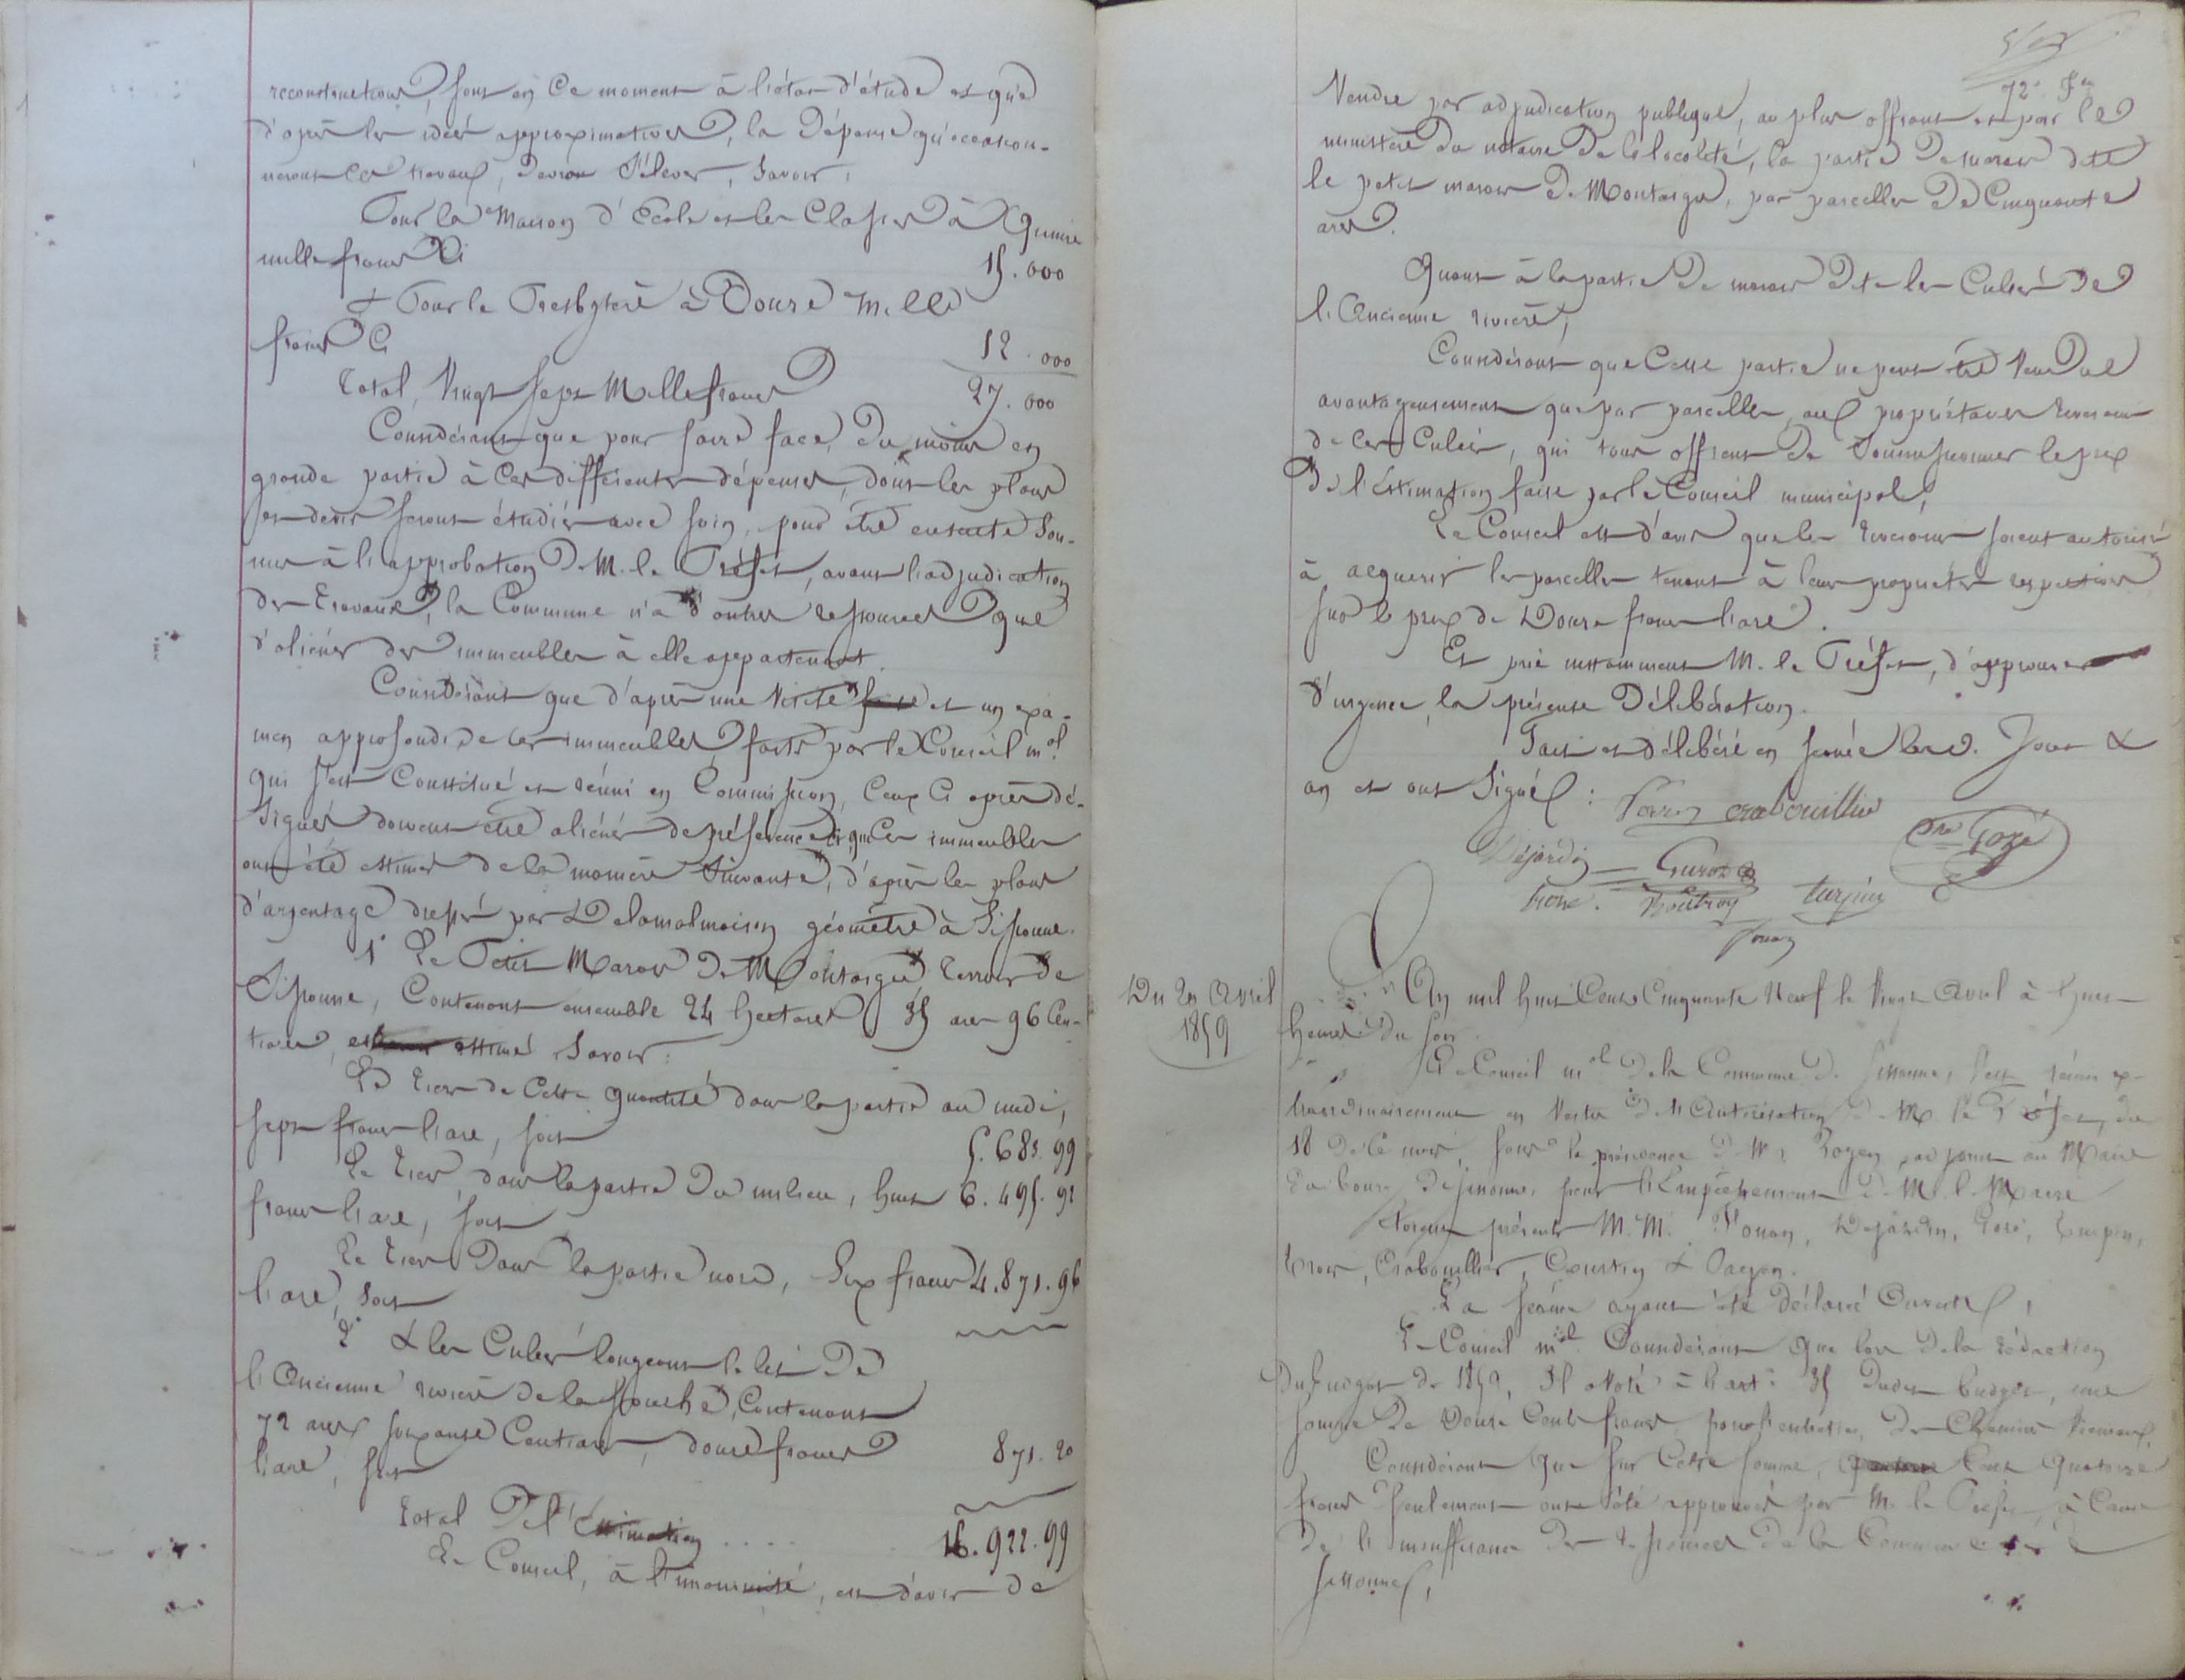 reconstructions, sont en ce moment à l'état d'étude et que
d'après les idées approximatives, la dépense qu'occasion-
neront ces travaux, devront s'élever, savoir,
Pour la Maison d'École et les Classes à Quinze
mille francs Ci 15.000
& Pour le Presbytère à Douze Mille
francs Ci 12.000
Total, Vingt sept Mille francs 27.000
Considérant que pour faire face, du moins en
grande partie à ces différentes dépenses, dont les plans
et devis seront étudiés avec soin, pour être ensuite sou-
mis à l'approbation de M. le Préfet, avant l'adjudication
des travaux, la Commune n'a d'autres ressources que
d'aliéner des immeubles à elle appartenant.
Considérant que d'après une visite et un exa-
men approfondi de ces immeubles faits par le Conseil mal
qui s'est constitué et réuni en Commission, Ceux Ci après dé-
signés doivent être aliénés de préférence et que Ces immeubles
ont été estimés de la manière suivante, d'après les plans
d'arpentage dressés par Delamalmaison géomètre à Sissonne.
1° Le Petit Marais de Montaigu, terroir de
Sissonne, Contenant ensemble 24 hectares 35 ares 96 Cen-
tiares, estimé Savoir:
Le tiers de cette quantité dans la partie au midi,
sept francs l'are, soit 5.683.99
Le tiers dans la partie du milieu, huit 6.495.92
francs l'are, soit
Le tiers dans la partie nord, Six francs 4.871.96
l'are, soit
2° & les Culées longeant le lit de
l'Ancienne rivière de la Souche, Contenant
72 ares soixante Centiares, douze francs
l'are, soit 871.20
Total de l'Estimation .... 16.922.99
Le Conseil, à l'unanimité, est d'avis de
72e fet
Vendre par adjudication publique, au plus offrant et par le
ministère du notaire de la localité, la partie de marais dite
le petit marais de Montaigu, par parcelles de Cinquante
ares.
Quant à la partie de marais dite les Culées de
l'Ancienne rivière,
Considérant que Cette partie ne peut être Vendue
avantageusement que par parcelles, aux propriétaires riverains
de ces Culées, qui tous offrent de soumissionner le prix
de l'Estimation faite par le Conseil municipal,
Le Conseil est d'avis que les riverains soient autorisés
à acquérir les parcelles tenant à leurs propriétés respectives
sur le prix de Douze francs l'are.
Et prie instamment M. le Préfet, d'approuver
d'urgence, la présente Délibération.
Fait et délibéré en séance lesd. Jour &
an et ont Signé :
crabouillier
Dejardin
Gozé
turpin
Du 20 Avril
1859
L'An mil huit Cent Cinquante Neuf le Vingt Avril à huit
heures du soir
Le Conseil mal de la Commune de Sissonne, s'est réuni ex-
traordinairement en Vertu de l'Autorisation de M. le Préfet, du
18 de Ce mois, sous la présidence de Mr Rogen, adjoint au Maire
du bourg de Sissonne, pour l'Empêchement de M. le Maire
Étaient présents M.M. Fouan, Dejardin, Gozé, Turpin,
Crabouillier, Courtin & Payen.
La séance ayant été déclarée Ouverte,
Le Conseil mal Considérant que lors de la rédaction
du budget de 1859, Il a Voté à l'art: 35 dudit budget, une
somme de Douze Cents francs pour l'entretien des Chemins Vicinaux,
Considérant que sur Cette somme, Cent Quatorze
francs seulement ont été approuvés par M. le Préfet, à Cause
de l'insuffisance des ressources de la Commune de
Sissonne,